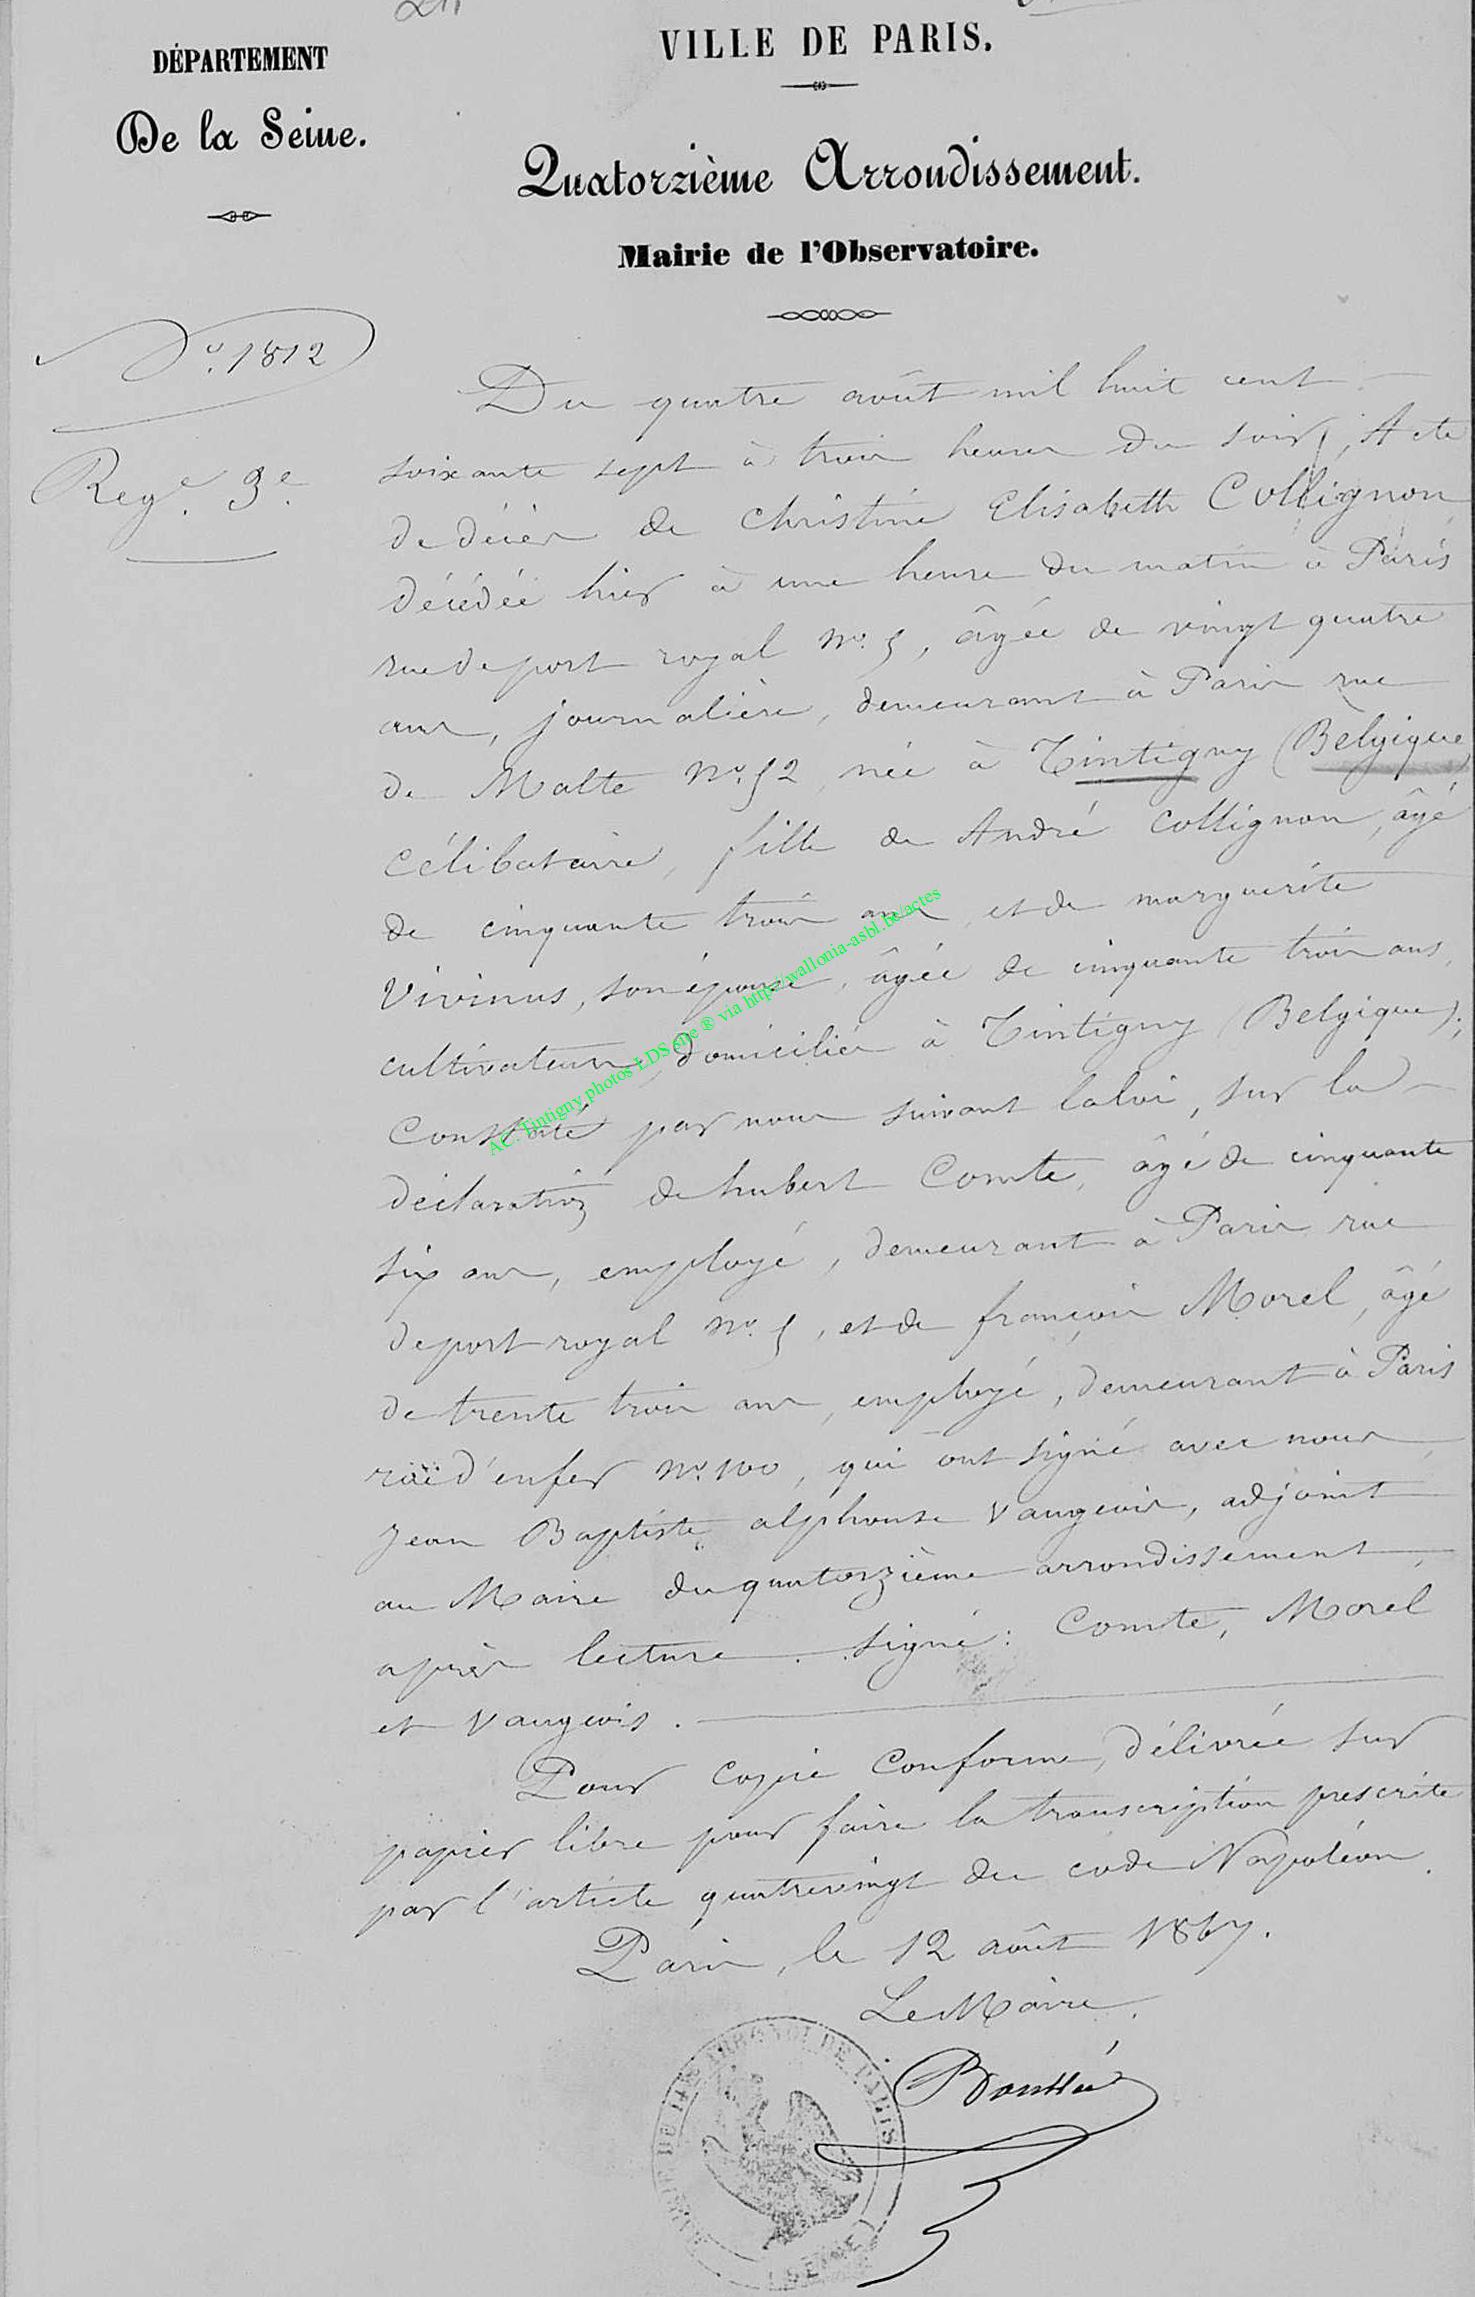 DÉPARTEMENT
De la Seine.
VILLE DE PARIS.
Quatorzième Arrondissement.
Mairie de l'Observatoire.
No. 1812
Rege. 3e.
Du quatre août mil huit cent
soixante sept à trois heures du soir, Acte
de décès de Christine Elisabeth Collignon
décédée hier à une heure du matin à Paris
rue de port royal No. 5, âgée de vingt quatre
ans, journalière, demeurant à Paris rue
de Malte No. 52, née à Tintigny (Belgique)
célibataire, fille de André Collignon, âgé
de cinquante trois ans et de marguerite
Vivinus, son épouse, âgée de cinquante trois ans,
cultivateurs, domiciliés à Tintigny (Belgique);
Constaté par nous suivant la loi, sur la
déclaration de hubert Comte, âgé de cinquante
six ans, employé, demeurant à Paris rue
de port royal No. 5, et de françois Morel, âgé
de trente trois ans, employé, demeurant à Paris
rue d'enfer No. 100, qui ont signé avec nous
Jean Baptiste alphonse Vaugeois, adjoint
au Maire du quatorzième arrondissement,
après lecture. signé: Comte, Morel
et Vaugeois.
Pour copie Conforme, délivrée sur
papier libre pour faire la transcription prescrite
par l'article quatrevingt du code Napoléon.
Paris, le 12 août 1867.
Le Maire,
AC. Tintigny photos LDS site ® via http://wallonia-asbl.be/actes